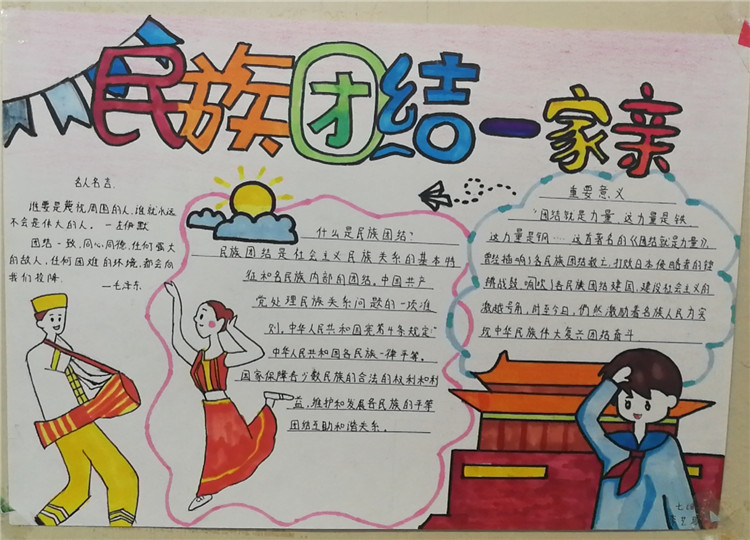 民族团结一家亲
名人名言
谁要是蔑视周围的人,谁就永远
不会是伟大的人。—左伊默
团结一致,同心同德,任何强大
的敌人,任何困难的环境,都会向
我们投降.
—毛泽东
什么是民族团结?
民族团结是社会主义民族关系的基本特
征和各民族内部的团结。中国共产
党处理民族关系问题的一项准
则。中华人民共和国宪第4条规定:
中华人民共和国各民族一律平等。
国家保障各少数民族的合法的权利和利
益,维护和发展各民族的平等
团结互助和谐关系。
重要意义
"团结就是力量,这力量是铁
这力量是钢……这首著名的《团结就是力量》,
曾经插响了各民族团结救亡,打败日本侵略者的铿
锵战鼓,响吹了各民族团结建国,建设社会主义的
激越号角,时至今日,仍然激励着各族人民为实
现中华民族伟大复兴团结奋斗